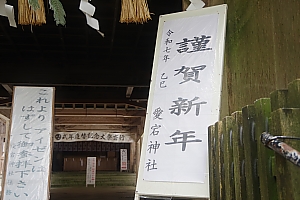 謹賀新年
令和七年 乙巳
愛宕神社
これよりアイゼンは
はずして御参拝下さい